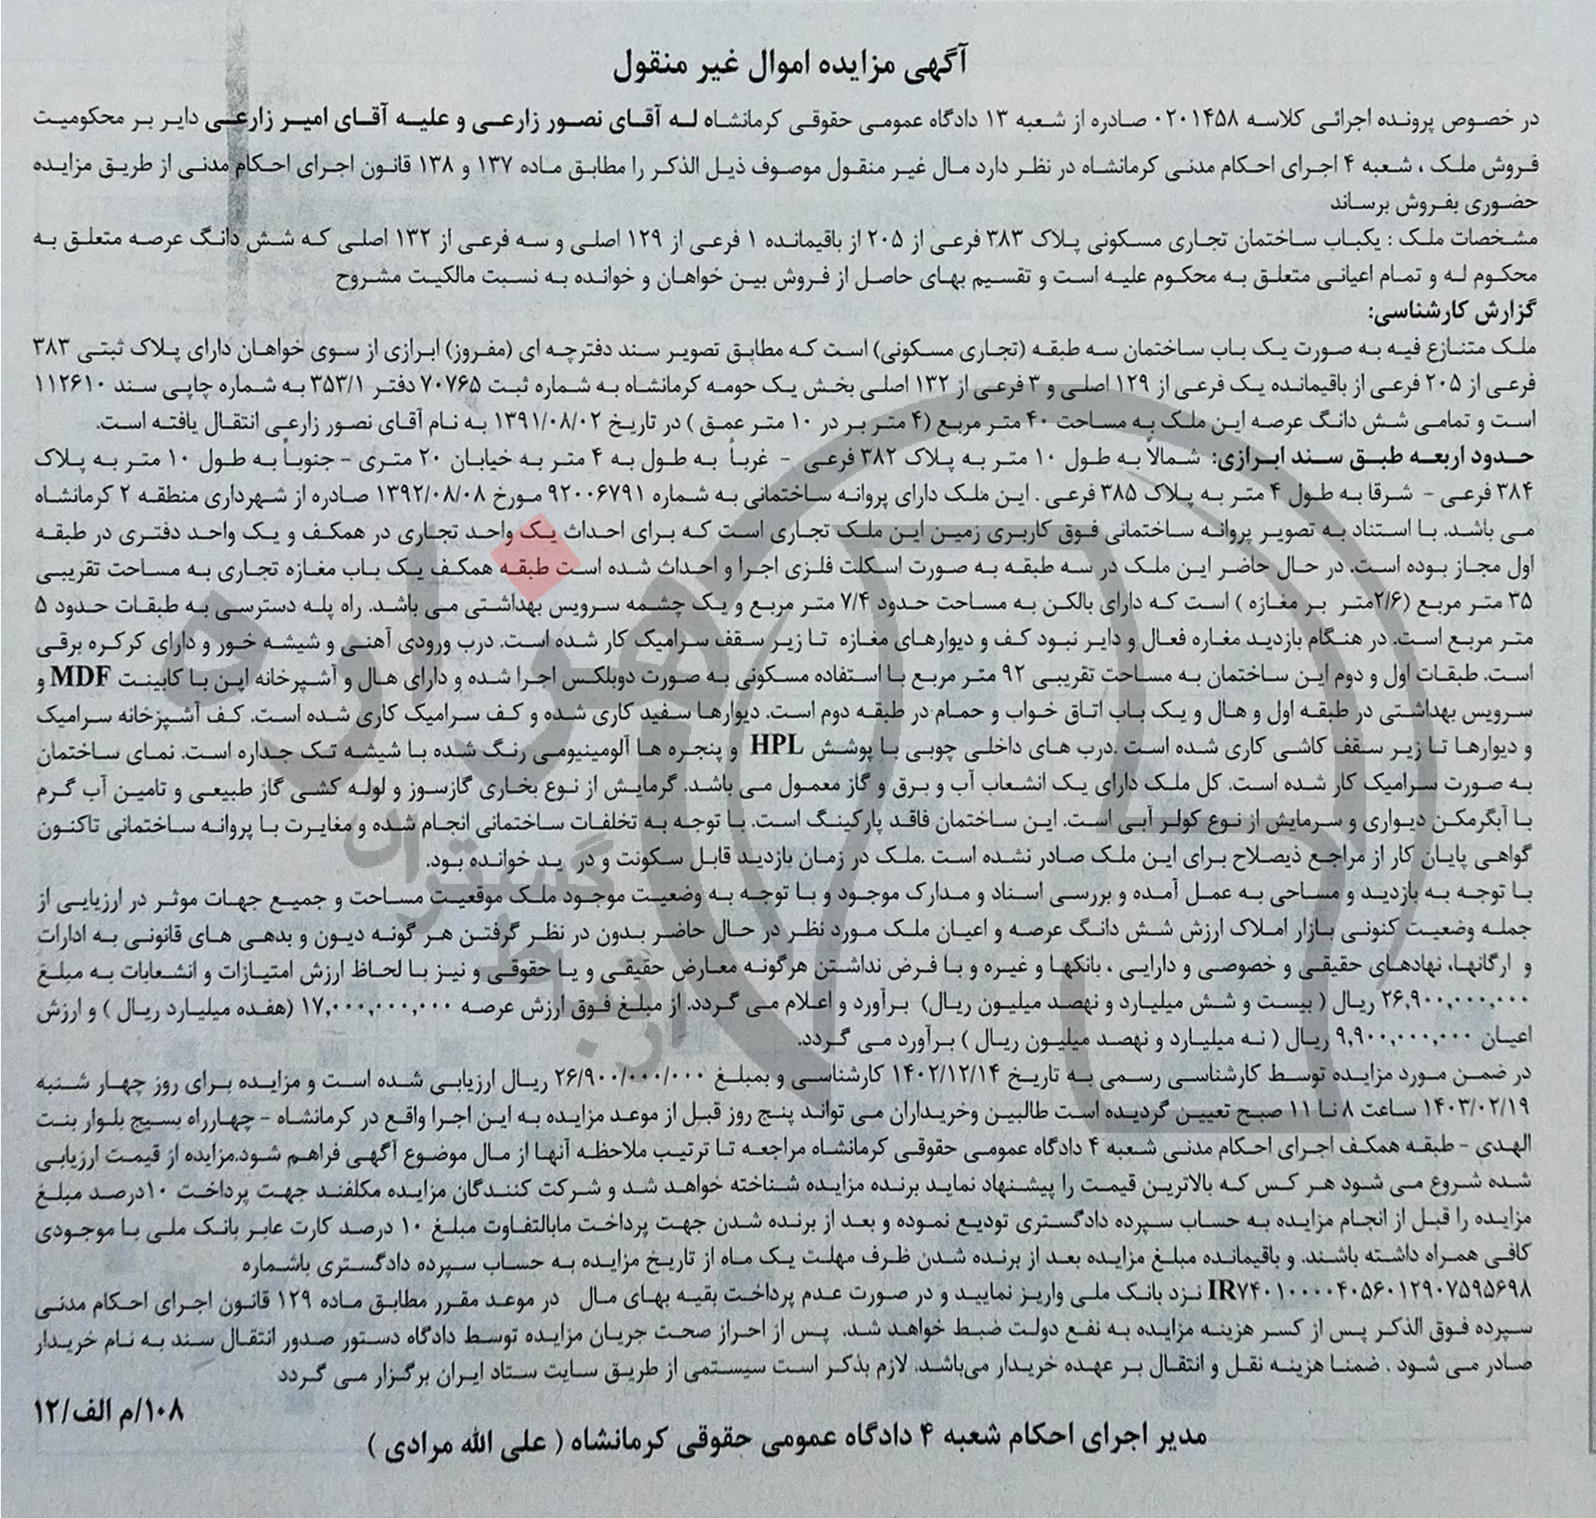 آگهی مزایده اموال غیر منقول
در خصوص پرونده اجرائی کلاسه ۰۲۰۱۴۵۸ صادره از شعبه ۱۳ دادگاه عمومی حقوقی کرمانشاه له آقای نصور زارعی و علیه آقای امیر زارعی دایر بر محکومیت
فروش ملک ، شعبه ۴ اجرای احکام مدنی کرمانشاه در نظر دارد مال غیر منقول موصوف ذیل الذکر را مطابق ماده ۱۳۷ و ۱۳۸ قانون اجرای احکام مدنی از طریق مزایده
حضوری بفروش برساند
مشخصات ملک : یکباب ساختمان تجاری مسکونی پلاک ۳۸۳ فرعی از ۲۰۵ از باقیمانده ۱ فرعی از ۱۲۹ اصلی و سه فرعی از ۱۳۲ اصلی که شش دانگ عرصه متعلق به
محکوم له و تمام اعیانی متعلق به محکوم علیه است و تقسیم بهای حاصل از فروش بین خواهان و خوانده به نسبت مالکیت مشروح
گزارش کارشناسی:
ملک متنازع فیه به صورت یک باب ساختمان سه طبقه (تجاری مسکونی) است که مطابق تصویر سند دفترچه ای (مفروز) ابرازی از سوی خواهان دارای پلاک ثبتی ۳۸۳
فرعی از ۲۰۵ فرعی از باقیمانده یک فرعی از ۱۲۹ اصلی و ۳ فرعی از ۱۳۲ اصلی بخش یک حومه کرمانشاه به شماره ثبت ۷۰۷۶۵ دفتر ۳۵۳/۱ به شماره چاپی سند ۱۱۲۶۱۰
است و تمامی شش دانگ عرصه این ملک به مساحت ۴۰ متر مربع (۴ متر بر در ۱۰ متر عمق ) در تاریخ ۱۳۹۱/۰۸/۰۲ به نام آقای نصور زارعی انتقال یافته است.
حدود اربعه طبق سند ابرازی: شمالاً به طول ۱۰ متر به پلاک ۳۸۲ فرعی - غرباً به طول به ۴ متر به خیابان ۲۰ متری - جنوباً به طول ۱۰ متر به پلاک
۳۸۴ فرعی - شرقا به طول ۴ متر به پلاک ۳۸۵ فرعی . این ملک دارای پروانه ساختمانی به شماره ۹۲۰۰۶۷۹۱ مورخ ۱۳۹۲/۰۸/۰۸ صادره از شهرداری منطقه ۲ کرمانشاه
می باشد. با استناد به تصویر پروانه ساختمانی فوق کاربری زمین این ملک تجاری است که برای احداث یک واحد تجاری در همکف و یک واحد دفتری در طبقه
اول مجاز بوده است. در حال حاضر این ملک در سه طبقه به صورت اسکلت فلزی اجرا و احداث شده است طبقه همکف یک باب مغازه تجاری به مساحت تقریبی
۳۵ متر مربع (۲/۶متر بر مغازه ) است که دارای بالکن به مساحت حدود ۷/۴ متر مربع و یک چشمه سرویس بهداشتی می باشد. راه پله دسترسی به طبقات حدود ۵
متر مربع است. در هنگام بازدید مغازه فعال و دایر نبود کف و دیوارهای مغازه تا زیر سقف سرامیک کار شده است. درب ورودی آهنی و شیشه خور و دارای کرکره برقی
است. طبقات اول و دوم این ساختمان به مساحت تقریبی ۹۲ متر مربع با استفاده مسکونی به صورت دوبلکس اجرا شده و دارای هال و آشپرخانه اپن با کابینت MDF و
سرویس بهداشتی در طبقه اول و هال و یک باب اتاق خواب و حمام در طبقه دوم است. دیوارها سفید کاری شده و کف سرامیک کاری شده است. کف آشپزخانه سرامیک
و دیوارها تا زیر سقف کاشی کاری شده است .درب های داخلی چوبی با پوشش HPL و پنجره ها آلومینیومی رنگ شده با شیشه تک جداره است. نمای ساختمان
به صورت سرامیک کار شده است. کل ملک دارای یک انشعاب آب و برق و گاز معمول می باشد. گرمایش از نوع بخاری گازسوز و لوله کشی گاز طبیعی و تامین آب گرم
با آبگرمکن دیواری و سرمایش از نوع کولر آبی است. این ساختمان فاقد پارکینگ است. با توجه به تخلفات ساختمانی انجام شده و مغایرت با پروانه ساختمانی تاکنون
گواهی پایان کار از مراجع ذیصلاح برای این ملک صادر نشده است .ملک در زمان بازدید قابل سکونت و در ید خوانده بود.
با توجه به بازدید و مساحی به عمل آمده و بررسی اسناد و مدارک موجود و با توجه به وضعیت موجود ملک موقعیت مساحت و جمیع جهات موثر در ارزیابی از
جمله وضعیت کنونی بازار املاک ارزش شش دانگ عرصه و اعیان ملک مورد نظر در حال حاضر بدون در نظر گرفتن هر گونه دیون و بدهی های قانونی به ادارات
و ارگانها، نهادهای حقیقی و خصوصی و دارایی ، بانکها و غیره و با فرض نداشتن هرگونه معارض حقیقی و یا حقوقی و نیز با لحاظ ارزش امتیازات و انشعابات به مبلغ
۲۶,۹۰۰,۰۰۰,۰۰۰ ریال ( بیست و شش میلیارد و نهصد میلیون ریال) برآورد و اعلام می گردد. از مبلغ فوق ارزش عرصه ۱۷,۰۰۰,۰۰۰,۰۰۰ (هفده میلیارد ریال ) و ارزش
اعیان ۹,۹۰۰,۰۰۰,۰۰۰ ریال ( نه میلیارد و نهصد میلیون ریال ) برآورد می گردد.
در ضمن مورد مزایده توسط کارشناسی رسمی به تاریخ ۱۴۰۲/۱۲/۱۴ کارشناسی و بمبلغ ۲۶/۹۰۰/۰۰۰/۰۰۰ ریال ارزیابی شده است و مزایده برای روز چهار شنبه
۱۴۰۳/۰۲/۱۹ ساعت ۸ تا ۱۱ صبح تعیین گردیده است طالبین وخریداران می تواند پنج روز قبل از موعد مزایده به این اجرا واقع در کرمانشاه - چهارراه بسیج بلوار بنت
الهدی - طبقه همکف اجرای احکام مدنی شعبه ۴ دادگاه عمومی حقوقی کرمانشاه مراجعه تا ترتیب ملاحظه آنها از مال موضوع آگهی فراهم شود.مزایده از قیمت ارزیابی
شده شروع می شود هر کس که بالاترین قیمت را پیشنهاد نماید برنده مزایده شناخته خواهد شد و شرکت کنندگان مزایده مکلفند جهت پرداخت ۱۰درصد مبلغ
مزایده را قبل از انجام مزایده به حساب سپرده دادگستری تودیع نموده و بعد از برنده شدن جهت پرداخت مابالتفاوت مبلغ ۱۰ درصد کارت عابر بانک ملی با موجودی
کافی همراه داشته باشند. و باقیمانده مبلغ مزایده بعد از برنده شدن ظرف مهلت یک ماه از تاریخ مزایده به حساب سپرده دادگستری باشماره
IR۷۴۰۱۰۰۰۰۴۰۵۶۰۱۲۹۰۷۵۹۵۶۹۸ نزد بانک ملی واریز نمایید و در صورت عدم پرداخت بقیه بهای مال در موعد مقرر مطابق ماده ۱۲۹ قانون اجرای احکام مدنی
سپرده فوق الذکر پس از کسر هزینه مزایده به نفع دولت ضبط خواهد شد. پس از احراز صحت جریان مزایده توسط دادگاه دستور صدور انتقال سند به نام خریدار
صادر می شود . ضمنا هزینه نقل و انتقال بر عهده خریدار می‌باشد. لازم بذکر است سیستمی از طریق سایت ستاد ایران برگزار می گردد
۱۰۸/م الف/۱۲
مدیر اجرای احکام شعبه ۴ دادگاه عمومی حقوقی کرمانشاه ( علی الله مرادی )